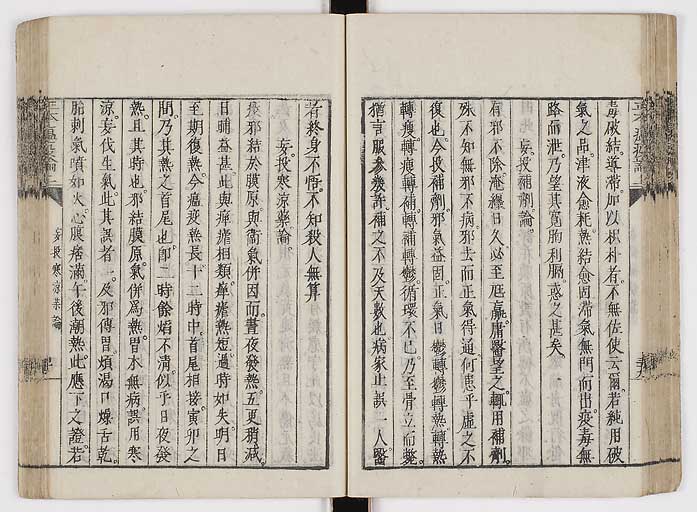 毒破結導滯加以枳朴者不無佐使云爾若純用破
氣之品津液愈耗熱結愈固滯氣無門而出疫毒無
路而泄乃望其寬胸利膈惑之甚矣
妄投補劑論
有邪不除淹纏日久必至尫羸庸醫望之輒用補劑
殊不知無邪不病邪去而正氣得通何患乎虛之不
復也今投補劑邪氣益固正氣日鬱轉鬱轉熱轉熱
轉瘦轉瘦轉補轉補轉鬱循環不已乃至骨立而斃
猶言服參幾許補之不及天數也病家止誤一人醫
者終身不悟不知殺人無算
妄投寒涼藥論
疫邪結於膜原與衞氣併因而晝夜發熱五更稍減
日晡益甚此與癉瘧相類癉瘧熱短過時如失明日
至期復熱今瘟疫熱長十二時中首尾相接寅卯之
間乃其熱之首尾也即二時餘焰不清似乎日夜發
熱且其時也邪結膜原氣併爲熱胃本無病誤用寒
涼妄伐生氣此其誤者一及邪傳胃煩渴口燥舌乾
胎刺氣噴如火心腹痞滿午後潮熱此應下之證若
妄投寒涼藥論